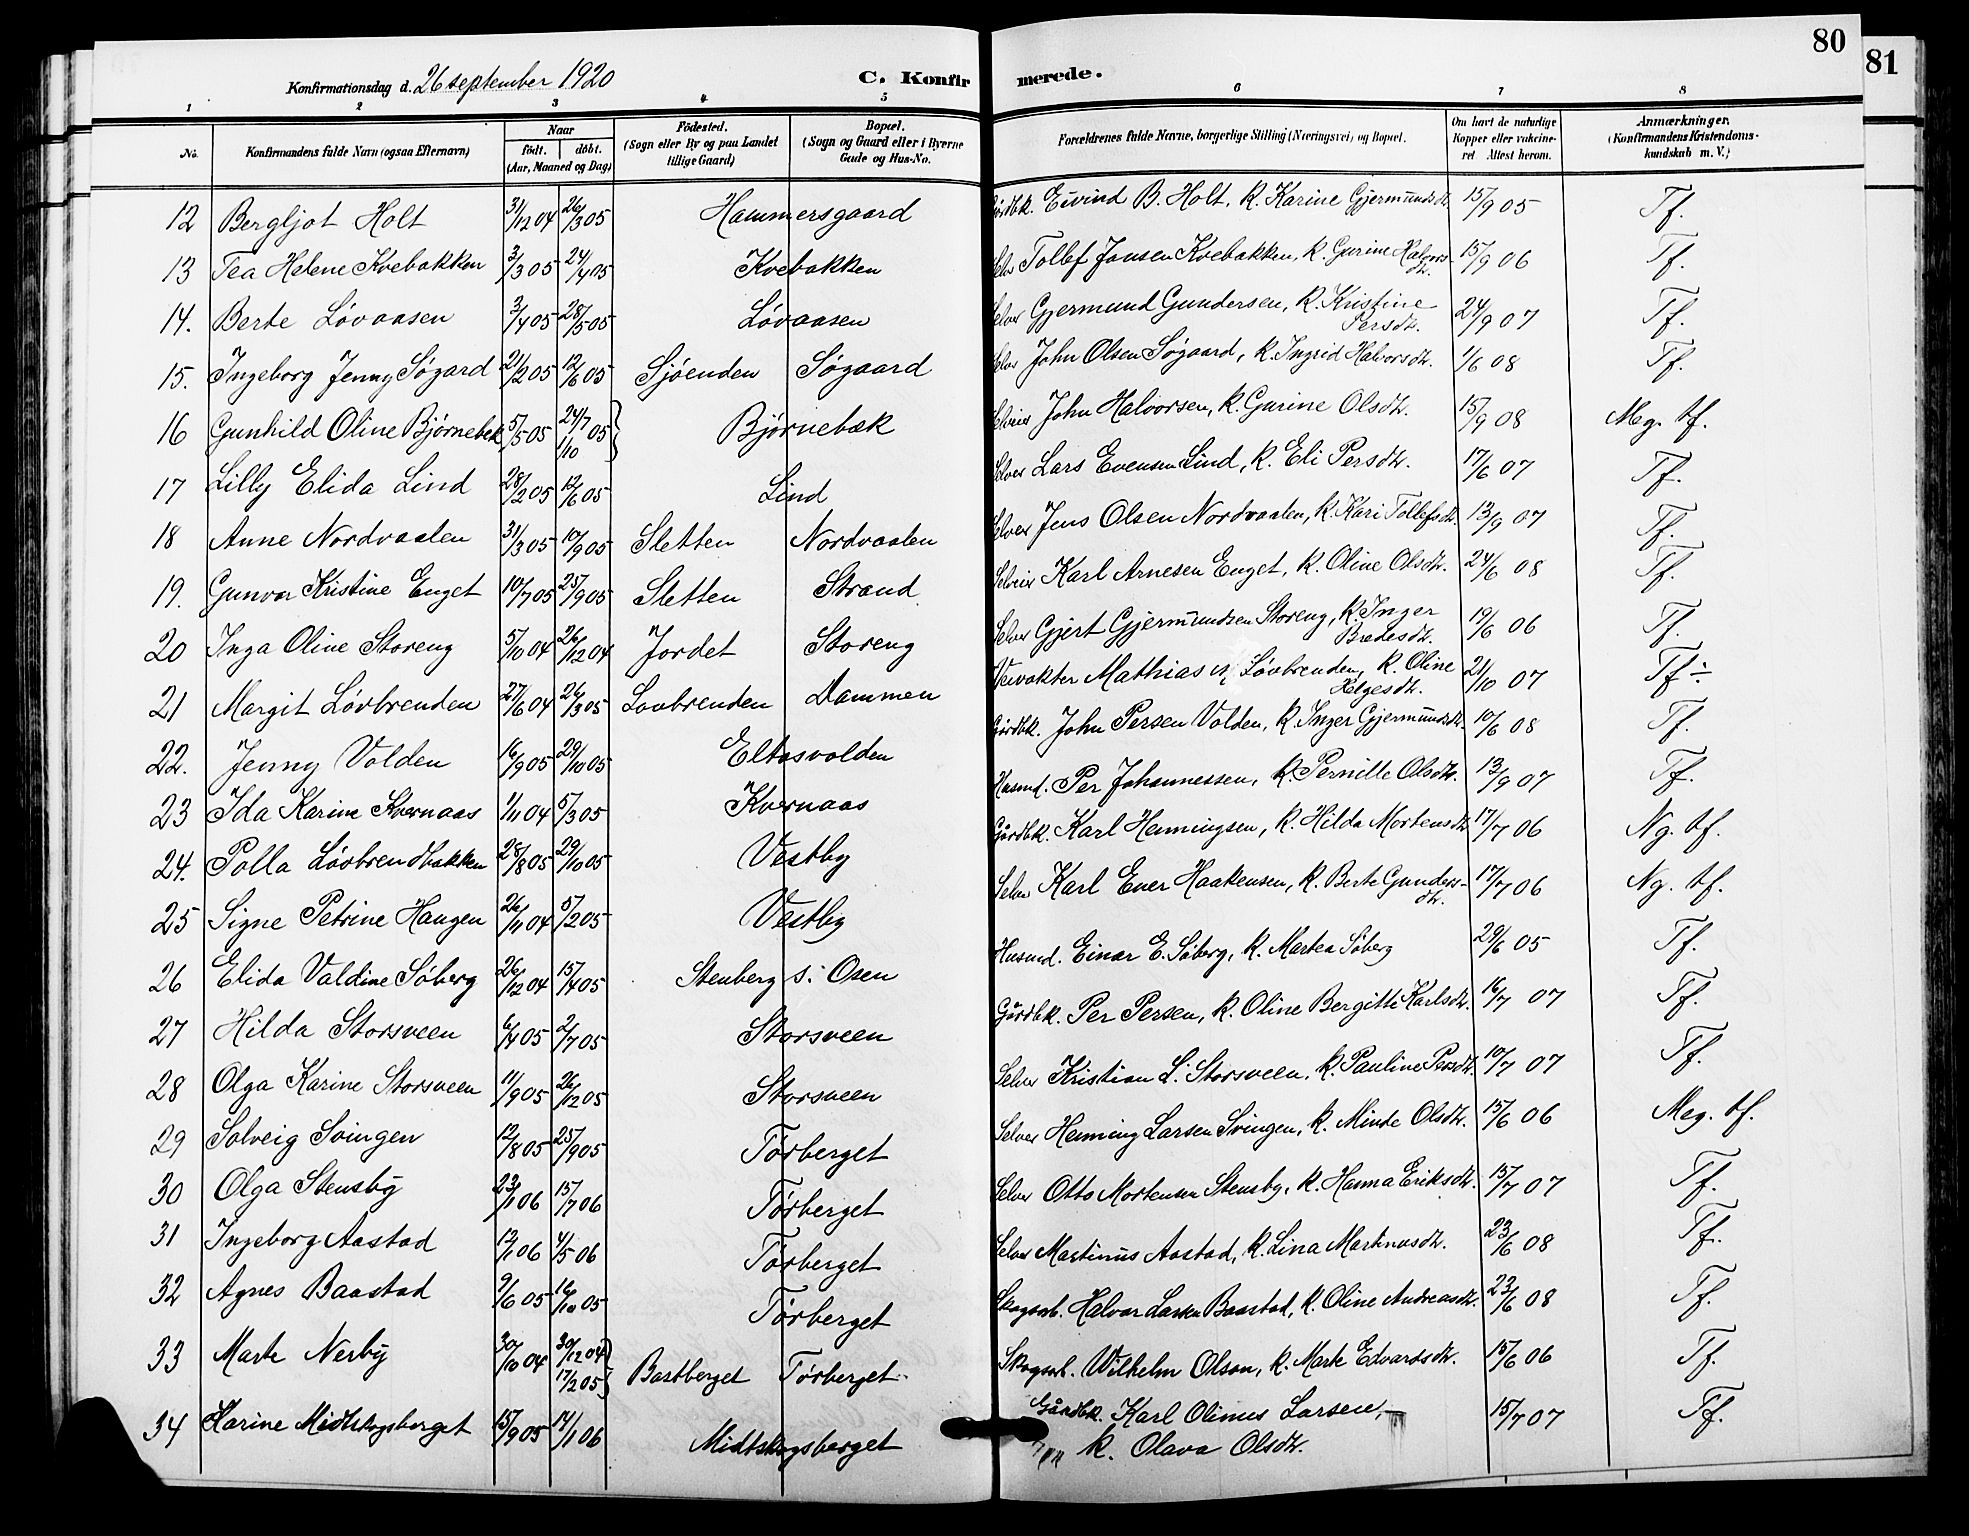 80
81
Konfirmationsdag d. 26 september 1920
C. Konfirmerede.
1 2 3 4 5 6 7 8
No. Konfirmandens fulde Navn (ogsaa Efternavn) Naar født. døbt. (Aar, Maaned og Dag) Fødested. (Sogn eller By og paa Landet tillige Gaard) Bopæl. (Sogn og Gaard eller i Byerne Gade og Hus-No. Forældrenes fulde Navne, borgerlige Stilling (Næringsvei) og Bopæl. Om havt de naturlige Kopper eller vakcineret Attest herom. Anmærkninger. (Konfirmandens Kristendomskundskab m. V.)
12 Bergljot Holt 31/12 04 26/3 05 Hammersgaard Gårdbk. Eivind B. Holt, k. Karine Gjermundsdtr. 15/9 05 Tf.
13 Tea Helene Kvebakken 3/3 05 24/4 05 Kvebakken Selv Tollef Jonsen Kvebakken, k. Gurine Halvorsdtr. 15/9 06 Tf.
14. Berte Løvaasen 3/4 05 28/5 05 Løvaasen Selv Gjermund Gundersen, k. Kristine Persdtr. 24/9 07 Tf.
15. Ingeborg Jenny Søgard 21/2 05 12/6 05 Sjøenden Søgaard Selv John Olsen Søgaard, k. Ingrid Halvorsdtr. 1/6 08 Tf.
16 Gunhild Oline Bjørnebek 5/5 05 24/7 1/10 05 Bjørnebæk Selveier John Halvorsen, k. Gurine Olsdtr. 15/9 08 Meg. tf.
17 Lilly Elida Lind 28/2 05 12/6 05 Lind Selvei Lars Evensen Lind, k. Eli Persdtr. 17/6 07 Tf.
18 Anne Nordvaalen 31/3 05 10/9 05 Sletten Nordvaalen Selvei Jens Olsen Nordvaalen, k. Kari Tollefsdtr. 13/9 07 Tf.
19. Gunvor Kristine Enget 10/7 05 25/9 05 Sletten Strand Selveier Karl Arnesen Enget, k. Oline Olsdtr. 24/6 08 Tf.
20 Inga Oline Storeng 5/10 04 26/12 04 Jordet Storeng Selv Gjert Gjermundsen Storeng, k. Inger Bredesdtr. 19/6 06 Tf.
21 Margit Løvbrenden 27/6 04 26/3 05 Lovbrenden Dammen Veivokter Mathias Løvbrenden, k. Oline Helgesdtr. 21/10 07 Tf ÷
22. Jenny Volden 16/9 05 29/10 05 Eltasvolden Gårdbk. John Persen Volden, k. Inger Gjermundsdtr. 10/6 08 Tf.
23 Ida Karine Kvernaas 1/11 04 5/3 05 Kvernaas Husmd. Per Johannessen, k. Pernille Olsdtr. 13/9 07 Tf.
24. Polla Løvbrendbakken 25/8 05 29/10 05 Vestby Gårdbk. Karl Henningsen, k. Hilda Mortensdtr 17/7 06 Ng. tf.
25 Signe Petrine Haugen 26/11 04 5/2 05 Vestby Selv Karl Ener Haakensen, k. Berte Gundersdtr. 17/7 06 Ng. tf.
26 Elida Valdine Søberg 26/12 04 15/4 05 Stenberg s. Osen Husmd. Einar E. Søberg, k. Martea Søberg 29/6 05 Tf.
27 Hilda Storsveen 6/4 05 2/7 05 Storsveen Gårdbk. Per Persen, k. Oline Bergitte Karlsdtr. 16/7 07 Tf.
28 Olga Karine Storsveen 11/9 05 26/12 05 Storsveen Selv Kristian L. Storsveen, k. Pauline Persdtr. 10/7 07 Tf.
29 Solveig Svingen 12/8 05 25/9 05 Tørberget Selv Henning Larsen Svingen, k. Minde Olsdtr. 15/6 06 Meg. tf.
30 Olga Stensby 23/1 06 15/7 06 Tørberget Selv Otto Mortensen Stensby, k. Hanna Eriksdtr. 15/7 07 Tf.
31 Ingeborg Aastad 12/1 06 4/5 06 Tørberget Selv Martinus Aastad, k. Lina Martinusdtr. 23/6 08 Tf.
32 Agnes Baastad 9/6 05 16/10 05 Tørberget Skogsarb. Halvor Larsen Baastad, k. Oline Andreasdtr. 23/6 08 Tf.
33 Marte Nerby 30/10 04 30/12 04 17/2 05 Bastberget Tørberget Skogsarb. Wilhelm Olson, k. Marte Edvardsdtr. 15/6 06 Tf.
34 Karine Midtskogsberget 15/9 05 14/1 06 Midtskogsberget Gårdbk. Karl Olinus Larsen, 15/7 07 Tf.
k. Olava Olsdtr.